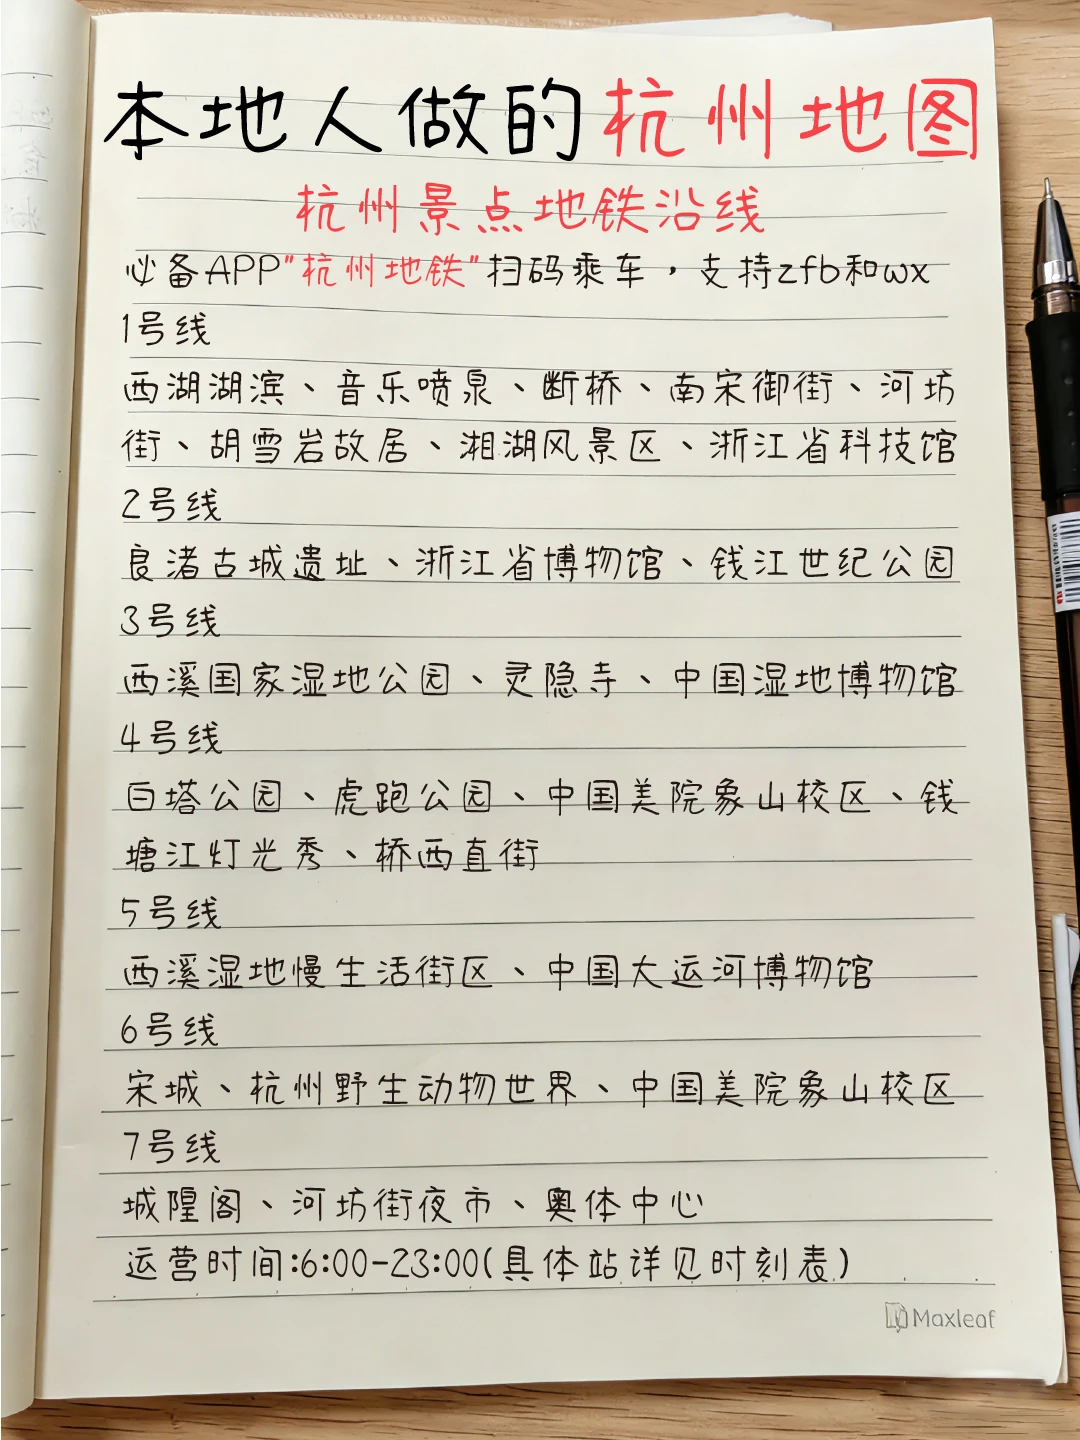 本地人做的杭州地图
杭州景点地铁沿线
必备APP"杭州地铁"扫码乘车，支持zfb和wx
1号线
西湖湖滨、音乐喷泉、断桥、南宋御街、河坊
街、胡雪岩故居、湘湖风景区、浙江省科技馆
2号线
良渚古城遗址、浙江省博物馆、钱江世纪公园
3号线
西溪国家湿地公园、灵隐寺、中国湿地博物馆
4号线
白塔公园、虎跑公园、中国美院象山校区、钱
塘江灯光秀、桥西直街
5号线
西溪湿地慢生活街区、中国大运河博物馆
6号线
宋城、杭州野生动物世界、中国美院象山校区
7号线
城隍阁、河坊街夜市、奥体中心
运营时间:6:00-23:00(具体站详见时刻表)
Maxleaf